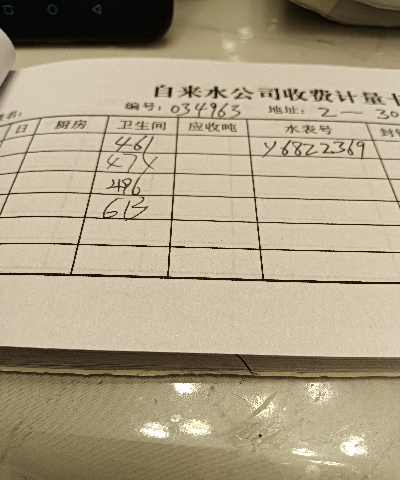 自来水公司收费计量卡
编号: 034963 地址: 2 — 30
姓名:
日 厨房 卫生间 应收吨 水表号 封
461 Y6822369
474
486
613